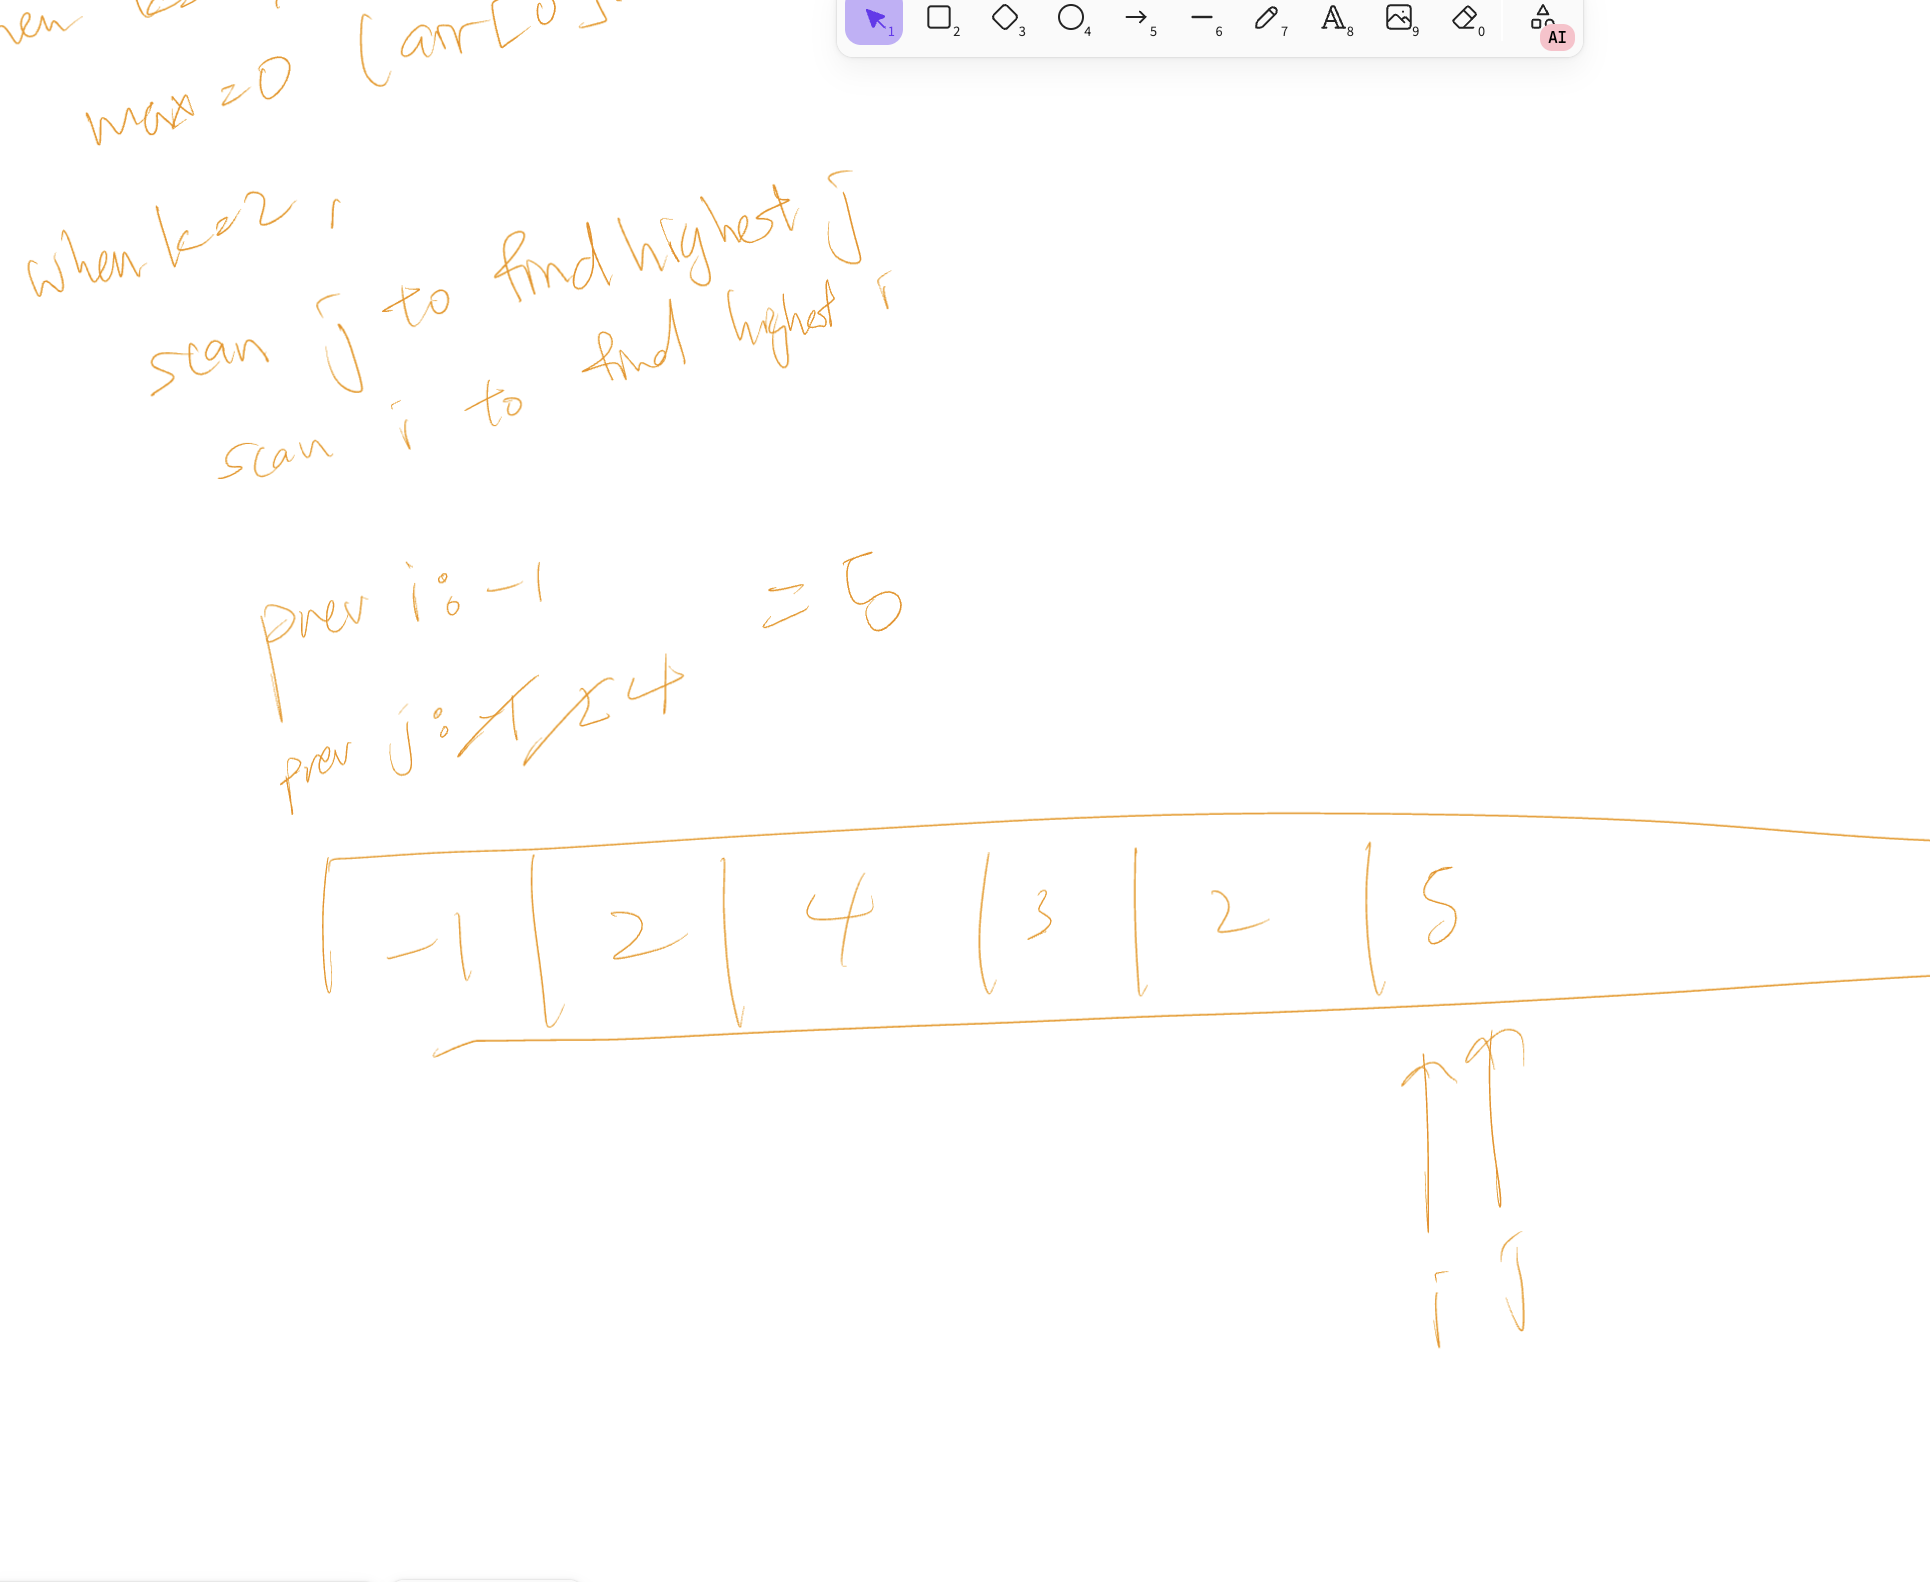 1 2 3 4 5 6 7 A 8 9 0 AI
max = 0 (arr[0]
when k=2,
scan j to find highest j
scan i to find highest i
prev i: -1 = 5
prev j: -1 2 4
-1 2 4 3 2 5
i j